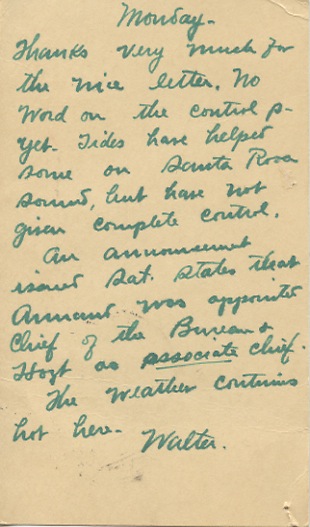 Monday-
Thanks very much for
the nice letter. No
Word on the control p-
yet. Tides have helped
some on Santa Rosa
sound, but have not
given complete control.
An announcement
issued Sat. states that
Annand was appointed
Chief of the Bureau &
Hoyt as associate chief.
The weather continues
hot here-
Walter.